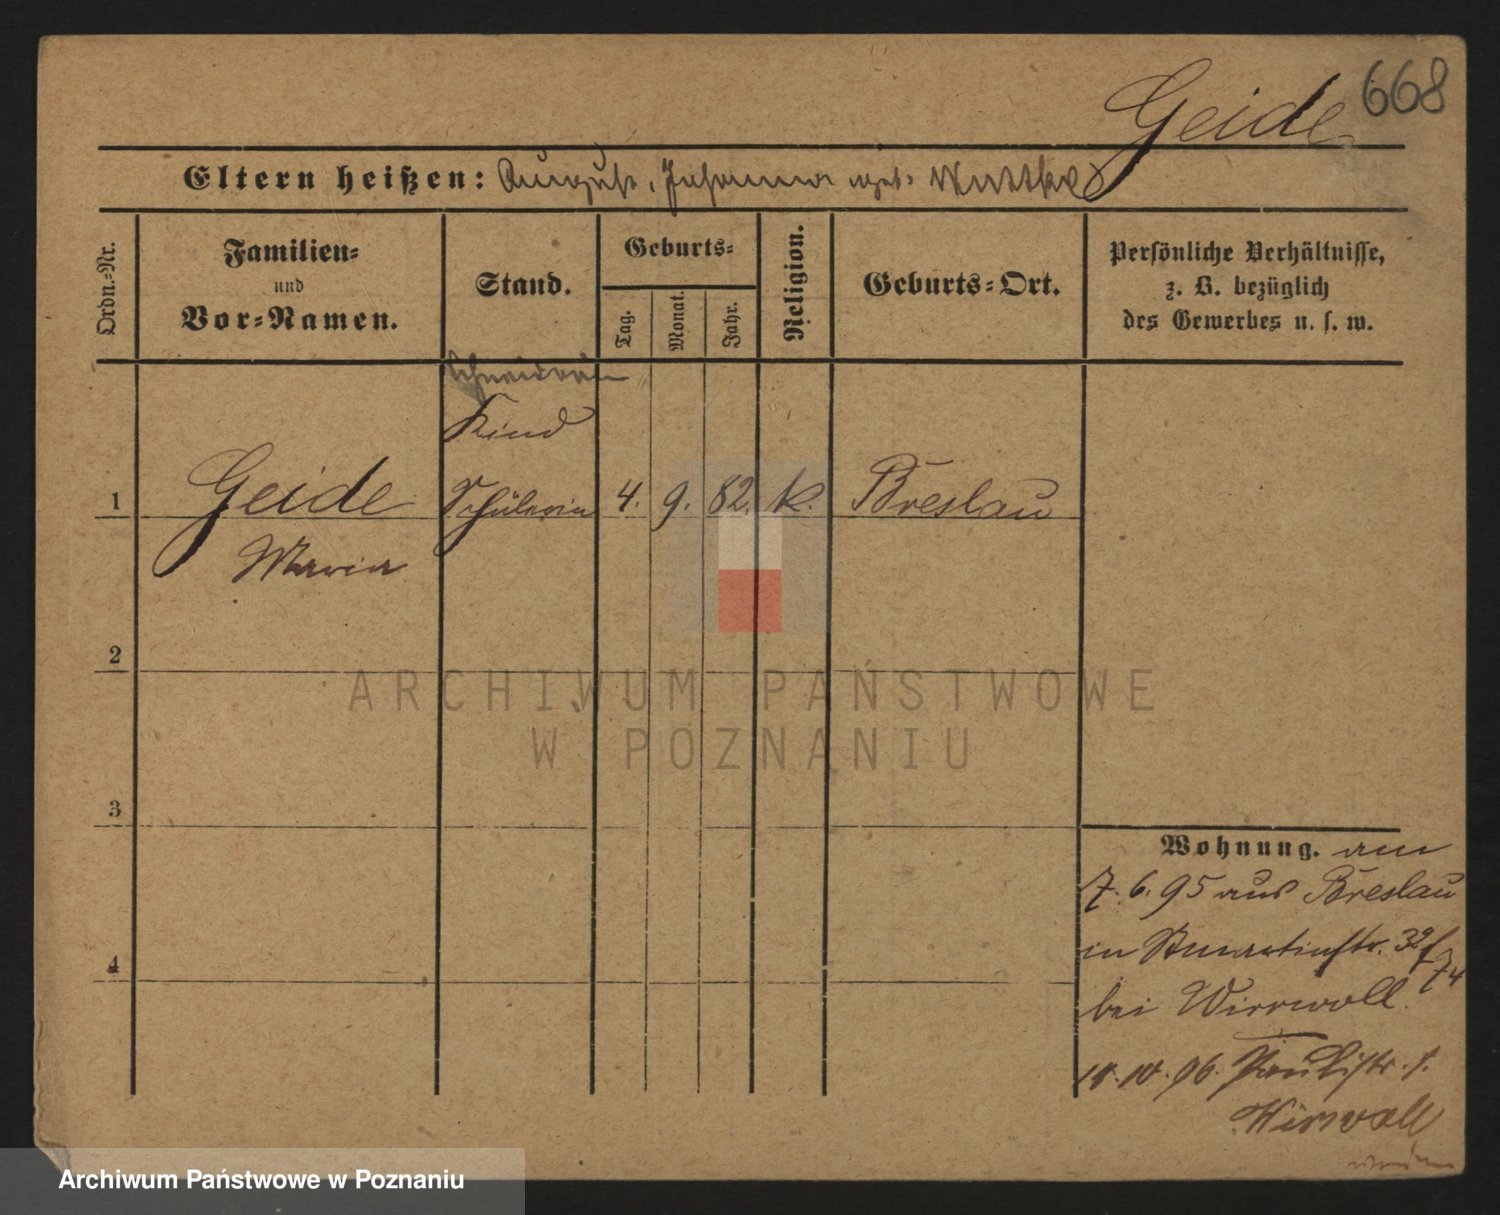 668
Geide
Eltern heißen: August, Johanna geb. Wuttke
Ordn.-Nr.
Familien-
und
Vor-Namen.
Stand.
Geburts-
Tag.
Monat.
Jahr.
Religion.
Geburts-Ort.
Persönliche Verhältnisse,
z. B. bezüglich
des Gewerbes u. s. w.
Schneiderin
Kind
1 Geide Schülerin 4. 9. 82. k. Breslau
Maria
2
ARCHIWUM PAŃSTWOWE
W POZNANIU
3
Wohnung. am
7. 6. 95 aus Breslau
in Stmartinstr. 32
74
bei Wirrwoll.
18. 10. 96. Paulistr.
Wirrwoll
4
Archiwum Państwowe w Poznaniu